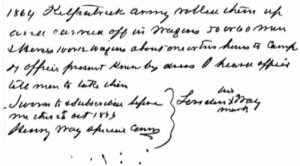 1864 Kilpatrick army rolled them up
and carried off in wagons 50 or 60 men
& horses 10 or 12 wagons about one or two hours to Camp
officers present Known by dress I heard officers
tell men to take them
Sworn to & Subscribed before
me this 26 oct 1873
Henry Way Special Comr
his
London X Way
mark